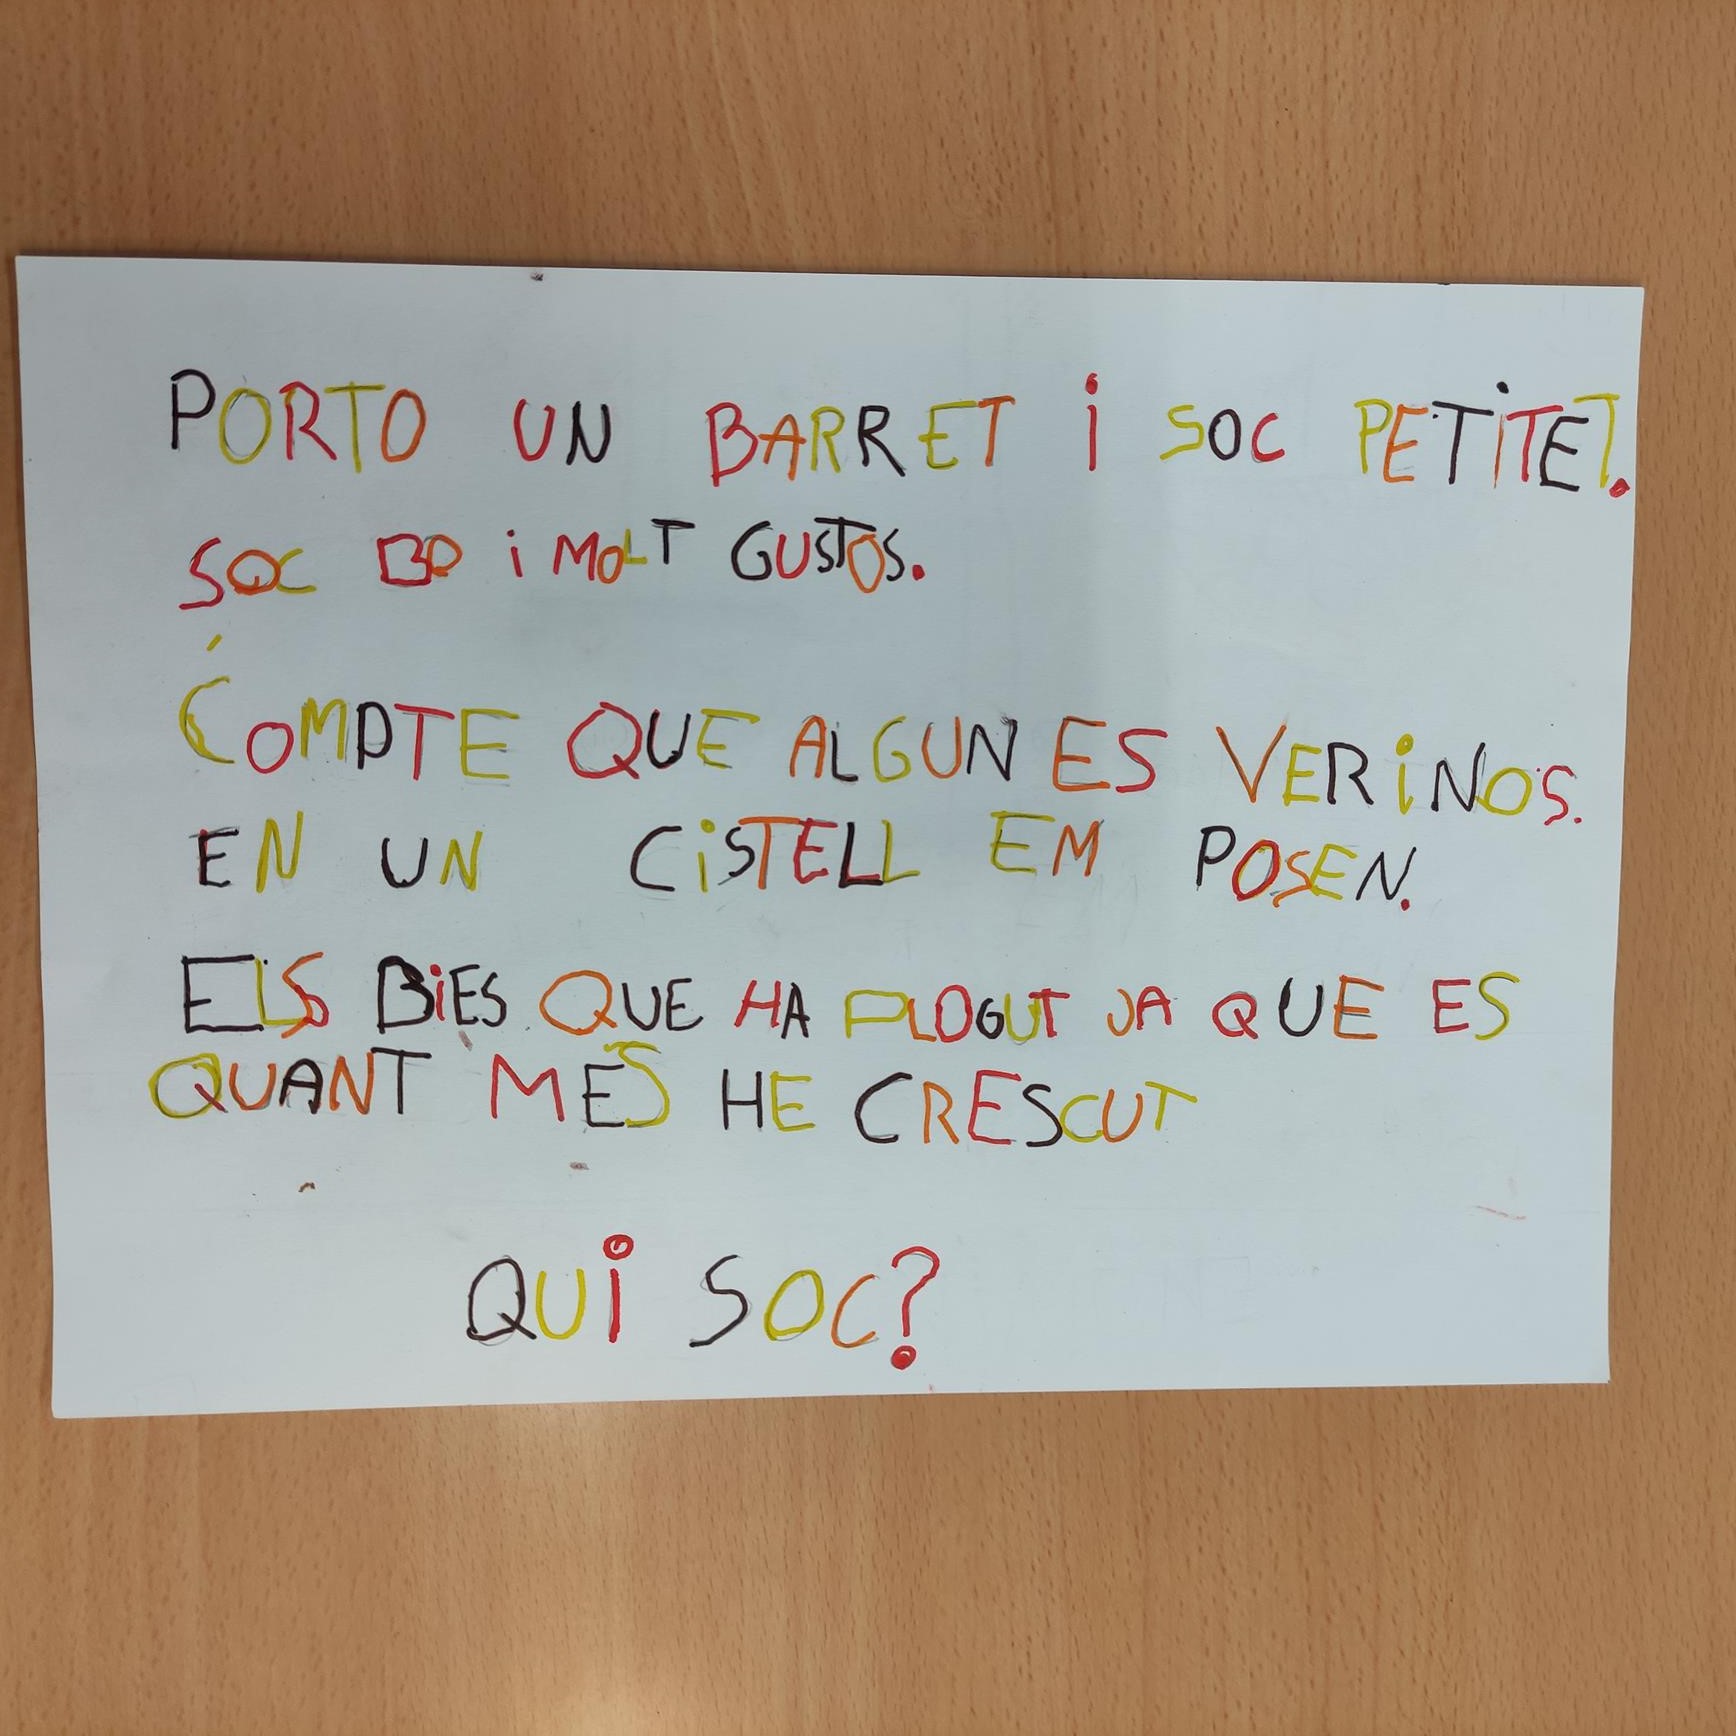 PORTO UN BARRET i SOC PETiTET.
SOC BO i MOLT GUSTOS.
COMPTE QUE ALGUN ES VERiNOS.
EN UN CiSTELL EM POSEN.
ELS BiES QUE HA PLOGUT JA QUE ES
QUANT MÉS HE CRESCUT
QUi SOC?